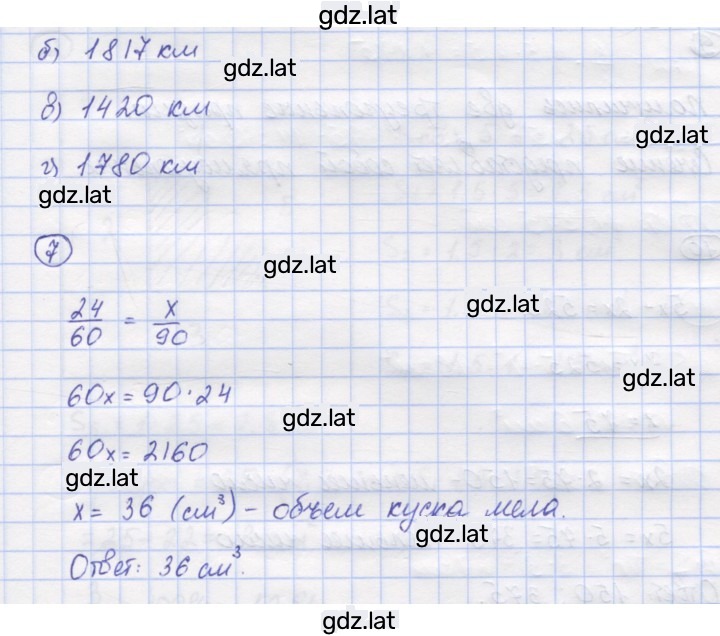 gdz.lat
б) 1817 км
gdz.lat
в) 1420 км
gdz.lat
г) 1780 км
gdz.lat
7
gdz.lat
24/60 = x/90
gdz.lat
gdz.lat
60x = 90 · 24
gdz.lat
60x = 2160
gdz.lat
x = 36 (см³) - объем куска мела.
gdz.lat
Ответ: 36 см³.
gdz.lat